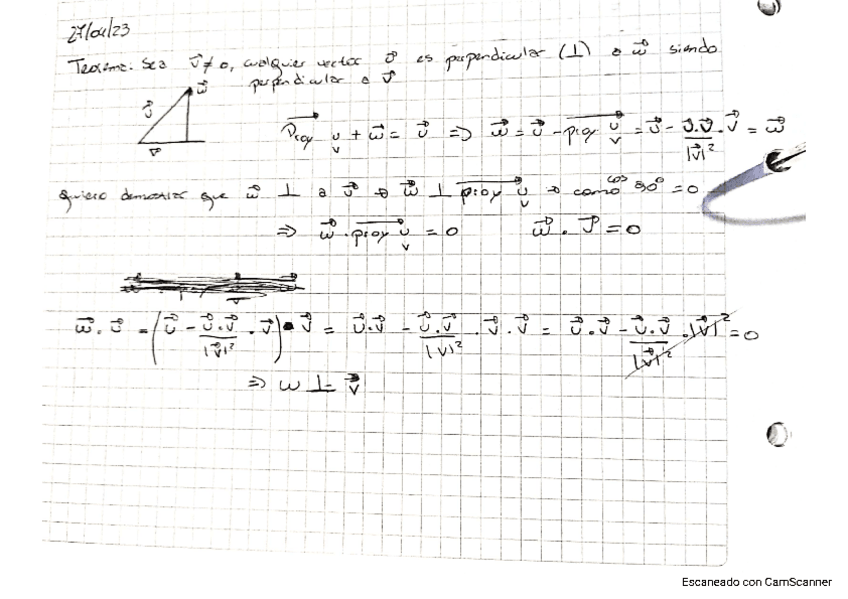 27/04/23
Teorema: Sea \vec{v} ≠ 0, cualquier vector \vec{u} es perpendicular (⊥) a \vec{w} siendo
perpendicular a \vec{v}
\overrightarrow{Proy}_{v} u + \vec{w} = \vec{u} ⇒ \vec{w} = \vec{u} - \overrightarrow{proy}_{v} u = \vec{u} - \frac{\vec{u}.\vec{v}}{|\vec{v}|^2} . \vec{v} = \vec{w}
quiero demostrar que \vec{w} ⊥ a \vec{v} ⇒ \vec{w} ⊥ \overrightarrow{proy}_{v} u ⇒ como cos 90° = 0
⇒ \vec{w} . \overrightarrow{proy}_{v} u = 0 \vec{w} . \vec{v} = 0
\vec{w} . \vec{v} = (\vec{u} - \frac{\vec{u}.\vec{v}}{|\vec{v}|^2} . \vec{v}) . \vec{v} = \vec{u}.\vec{v} - \frac{\vec{u}.\vec{v}}{|v|^2} . \vec{v}.\vec{v} = \vec{u}.\vec{v} - \frac{\vec{u}.\vec{v}}{|\vec{v}|^2} . |\vec{v}|^2 = 0
⇒ w ⊥ \vec{v}
Escaneado con CamScanner